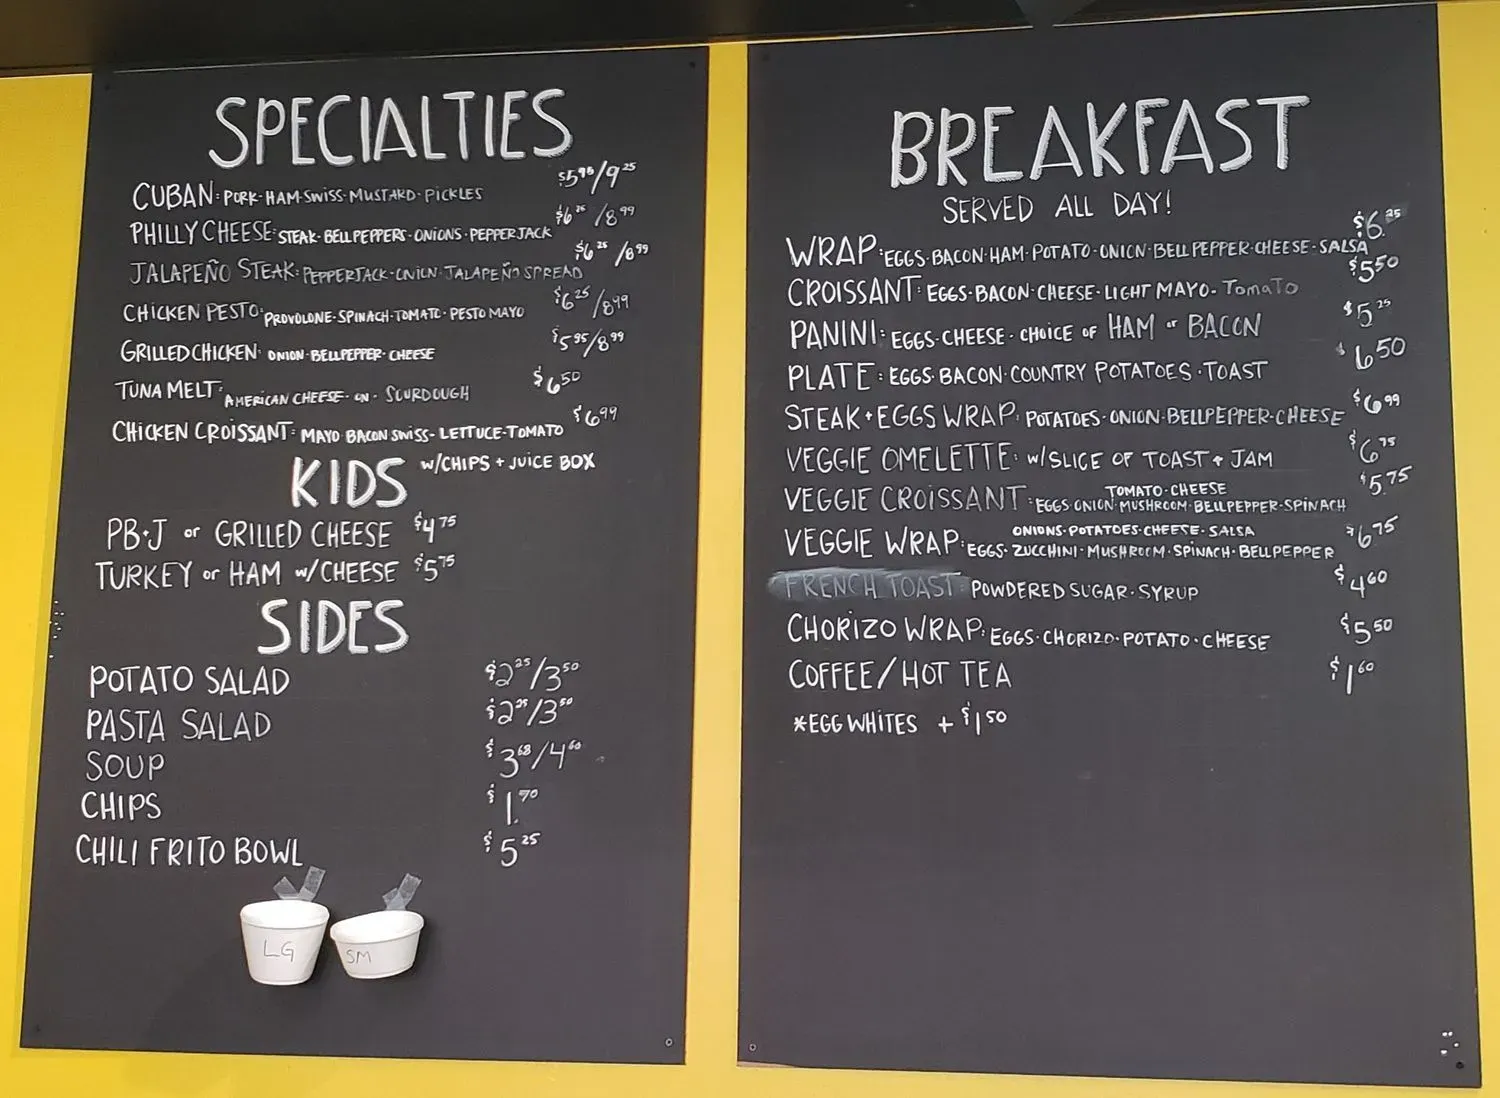 SPECIALTIES
CUBAN: PORK·HAM·SWISS·MUSTARD·PICKLES $5.95/9.25
PHILLY CHEESE: STEAK·BELL PEPPERS·ONIONS·PEPPERJACK $6.25/8.99
JALAPEÑO STEAK: PEPPERJACK·ONION·JALAPEÑO SPREAD $6.25/8.99
CHICKEN PESTO: PROVOLONE·SPINACH·TOMATO·PESTO MAYO $6.25/8.99
GRILLED CHICKEN: ONION·BELLPEPPER·CHEESE $5.95/8.99
TUNA MELT: AMERICAN CHEESE·ON·SOURDOUGH $6.50
CHICKEN CROISSANT: MAYO·BACON·SWISS·LETTUCE·TOMATO $6.99
KIDS W/CHIPS + JUICE BOX
PB+J or GRILLED CHEESE $4.75
TURKEY or HAM w/CHEESE $5.75
SIDES
POTATO SALAD $2.25/3.50
PASTA SALAD $2.25/3.50
SOUP $3.68/4.60
CHIPS $1.70
CHILI FRITO BOWL $5.25
LG
SM
BREAKFAST
SERVED ALL DAY!
WRAP: EGGS·BACON·HAM·POTATO·ONION·BELL PEPPER·CHEESE·SALSA $6.25
CROISSANT: EGGS·BACON·CHEESE·LIGHT MAYO·Tomato $5.50
PANINI: EGGS·CHEESE·CHOICE OF HAM or BACON $5.25
PLATE: EGGS·BACON·COUNTRY POTATOES·TOAST $6.50
STEAK + EGGS WRAP: POTATOES·ONION·BELLPEPPER·CHEESE $6.99
VEGGIE OMELETTE: W/SLICE OF TOAST + JAM $6.75
VEGGIE CROISSANT: TOMATO·CHEESE $5.75
EGGS·ONION·MUSHROOM·BELLPEPPER·SPINACH
VEGGIE WRAP: ONIONS·POTATOES·CHEESE·SALSA $6.75
EGGS·ZUCCHINI·MUSHROOM·SPINACH·BELLPEPPER
FRENCH TOAST: POWDERED SUGAR·SYRUP $4.60
CHORIZO WRAP: EGGS·CHORIZO·POTATO·CHEESE $5.50
COFFEE/HOT TEA $1.60
*EGG WHITES + $1.50